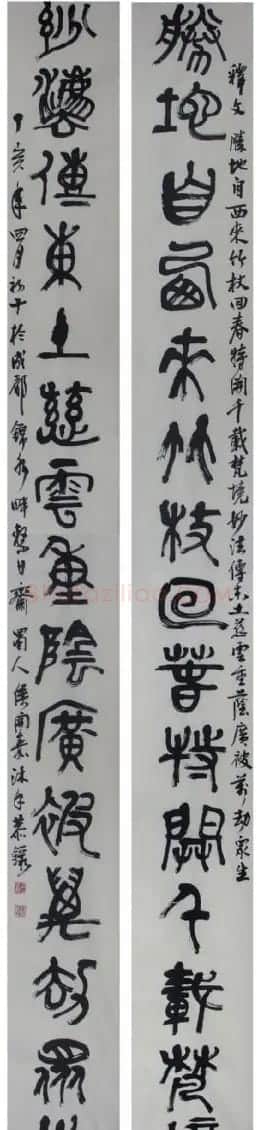 釋文 勝地自西來竹杖回春特開千載梵境妙法傳東土慈雲重蔭廣被萬劫眾生
勝地自西來竹杖回春特開千載梵境
妙法傳東土慈雲重陰廣被萬劫眾
丁亥年四月初十於成都錦水畔日齋蜀人侯開嘉沐手恭錄